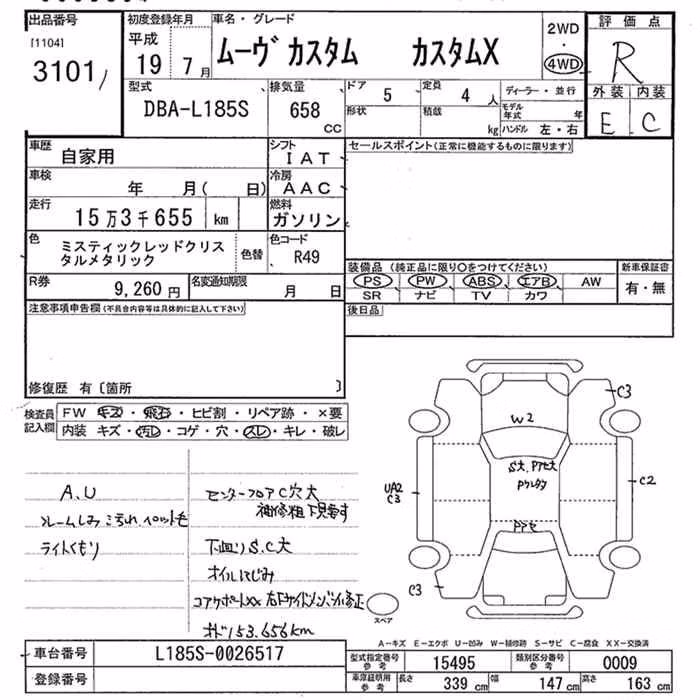 出品番号 初度登録年月 車名・グレード 評価点
[1104] 平成 ムーヴ カスタム カスタムX 2WD
3101 19 7月 ・ 4WD R
型式 排気量 ドア 5 定員 4 人 ディーラー・並行 外装 内装
DBA-L185S 658 CC 形状 積載 kg モデル年式 年 E C
ハンドル 左・右
車歴 自家用 シフト IAT セールスポイント(正常に機能するものに限ります)
車検 年 月( 日) 冷房 AAC
走行 15万3千655 km 燃料 ガソリン
色 ミスティックレッドクリス 色替 色コード R49
タルメタリック
装備品 (純正品に限り○をつけてください) 新車保証書
R券 9,260円 名変通知期限 月 日 PS PW ABS エアB AW 有・無
SR ナビ TV カワ
注意事項申告欄(不具合内容等は具体的に記入して下さい) 後日品
修復歴 有〔箇所 〕
検査員 FW キズ・飛石・ヒビ割・リペア跡・×要
記入欄 内装 キズ・汚レ・コゲ・穴・スレ・キレ・破レ
A.U センターフロアC穴大
補修粗 下見要す
フレームしみ こげ穴 ペット毛
ライトくもり 下廻りS.C大
オイルにじみ
コアサポートXX 右Fサイドメンバー修正
オド153.656km
C3
W2
UA2
C3
C2
C3
スペア
A-キズ E-エクボ U-凹み W-補修跡 S-サビ C-腐食 XX-交換済
車台番号 L185S-0026517 型式指定番号 参考 15495 類別区分番号 参考 0009
登録番号 車庫証明用 参考 長さ 339 cm 幅 147 cm 高さ 163 cm